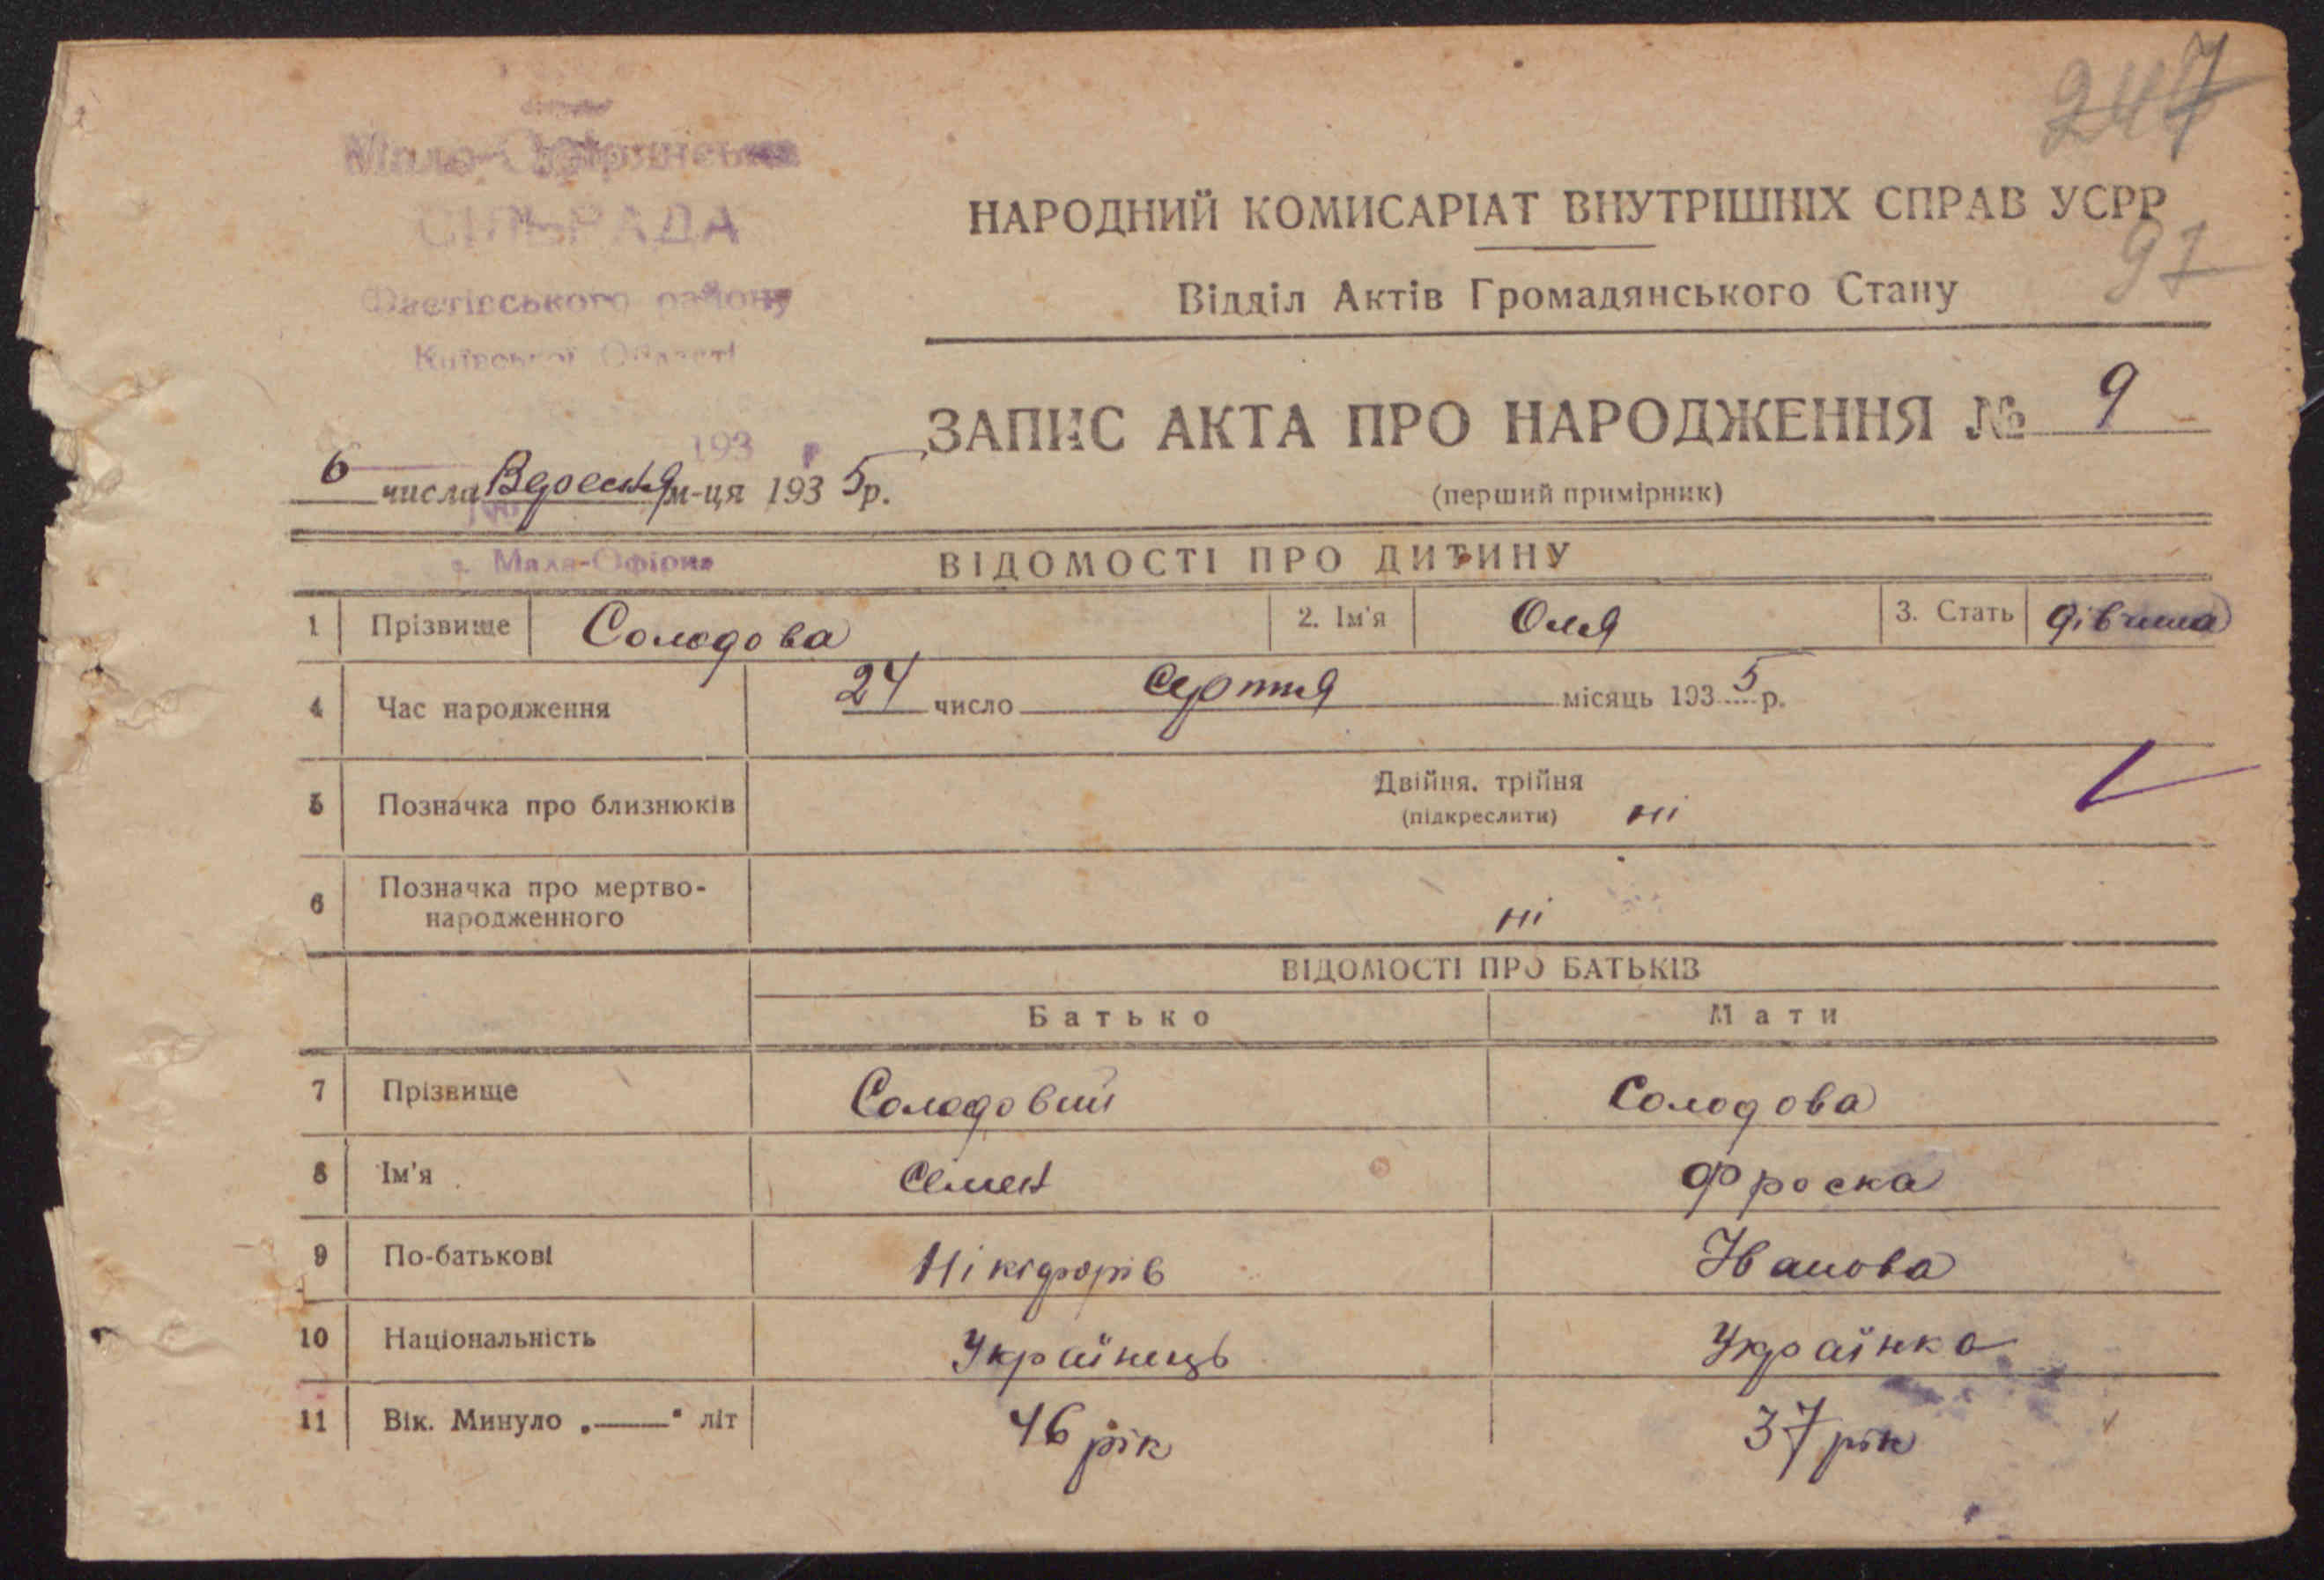 247
СІЛЬРАДА
Фастівського району
Київської Області
НАРОДНИЙ КОМИСАРІАТ ВНУТРІШНІХ СПРАВ УСРР
97
Відділ Актів Громадянського Стану
ЗАПИС АКТА ПРО НАРОДЖЕННЯ № 9
193 р
6 числа Вересня м-ця 1935 р.
(перший примірник)
с. Мала-Офірна
ВІДОМОСТІ ПРО ДИТИНУ
1 Прізвище Солодова 2. Ім'я Оля 3. Стать дівчина
4 Час народження 24 число серпня місяць 1935 р.
5 Позначка про близнюків Двійня, трійня
(підкреслити) ні
6 Позначка про мертво-
народженного ні
ВІДОМОСТІ ПРО БАТЬКІВ
Батько Мати
7 Прізвище Солодовий Солодова
8 Ім'я Семен Фроска
9 По-батькові Нікіфорів Іванова
10 Національність Українець Українка
11 Вік. Минуло „——“ літ 46 рік 37 рік